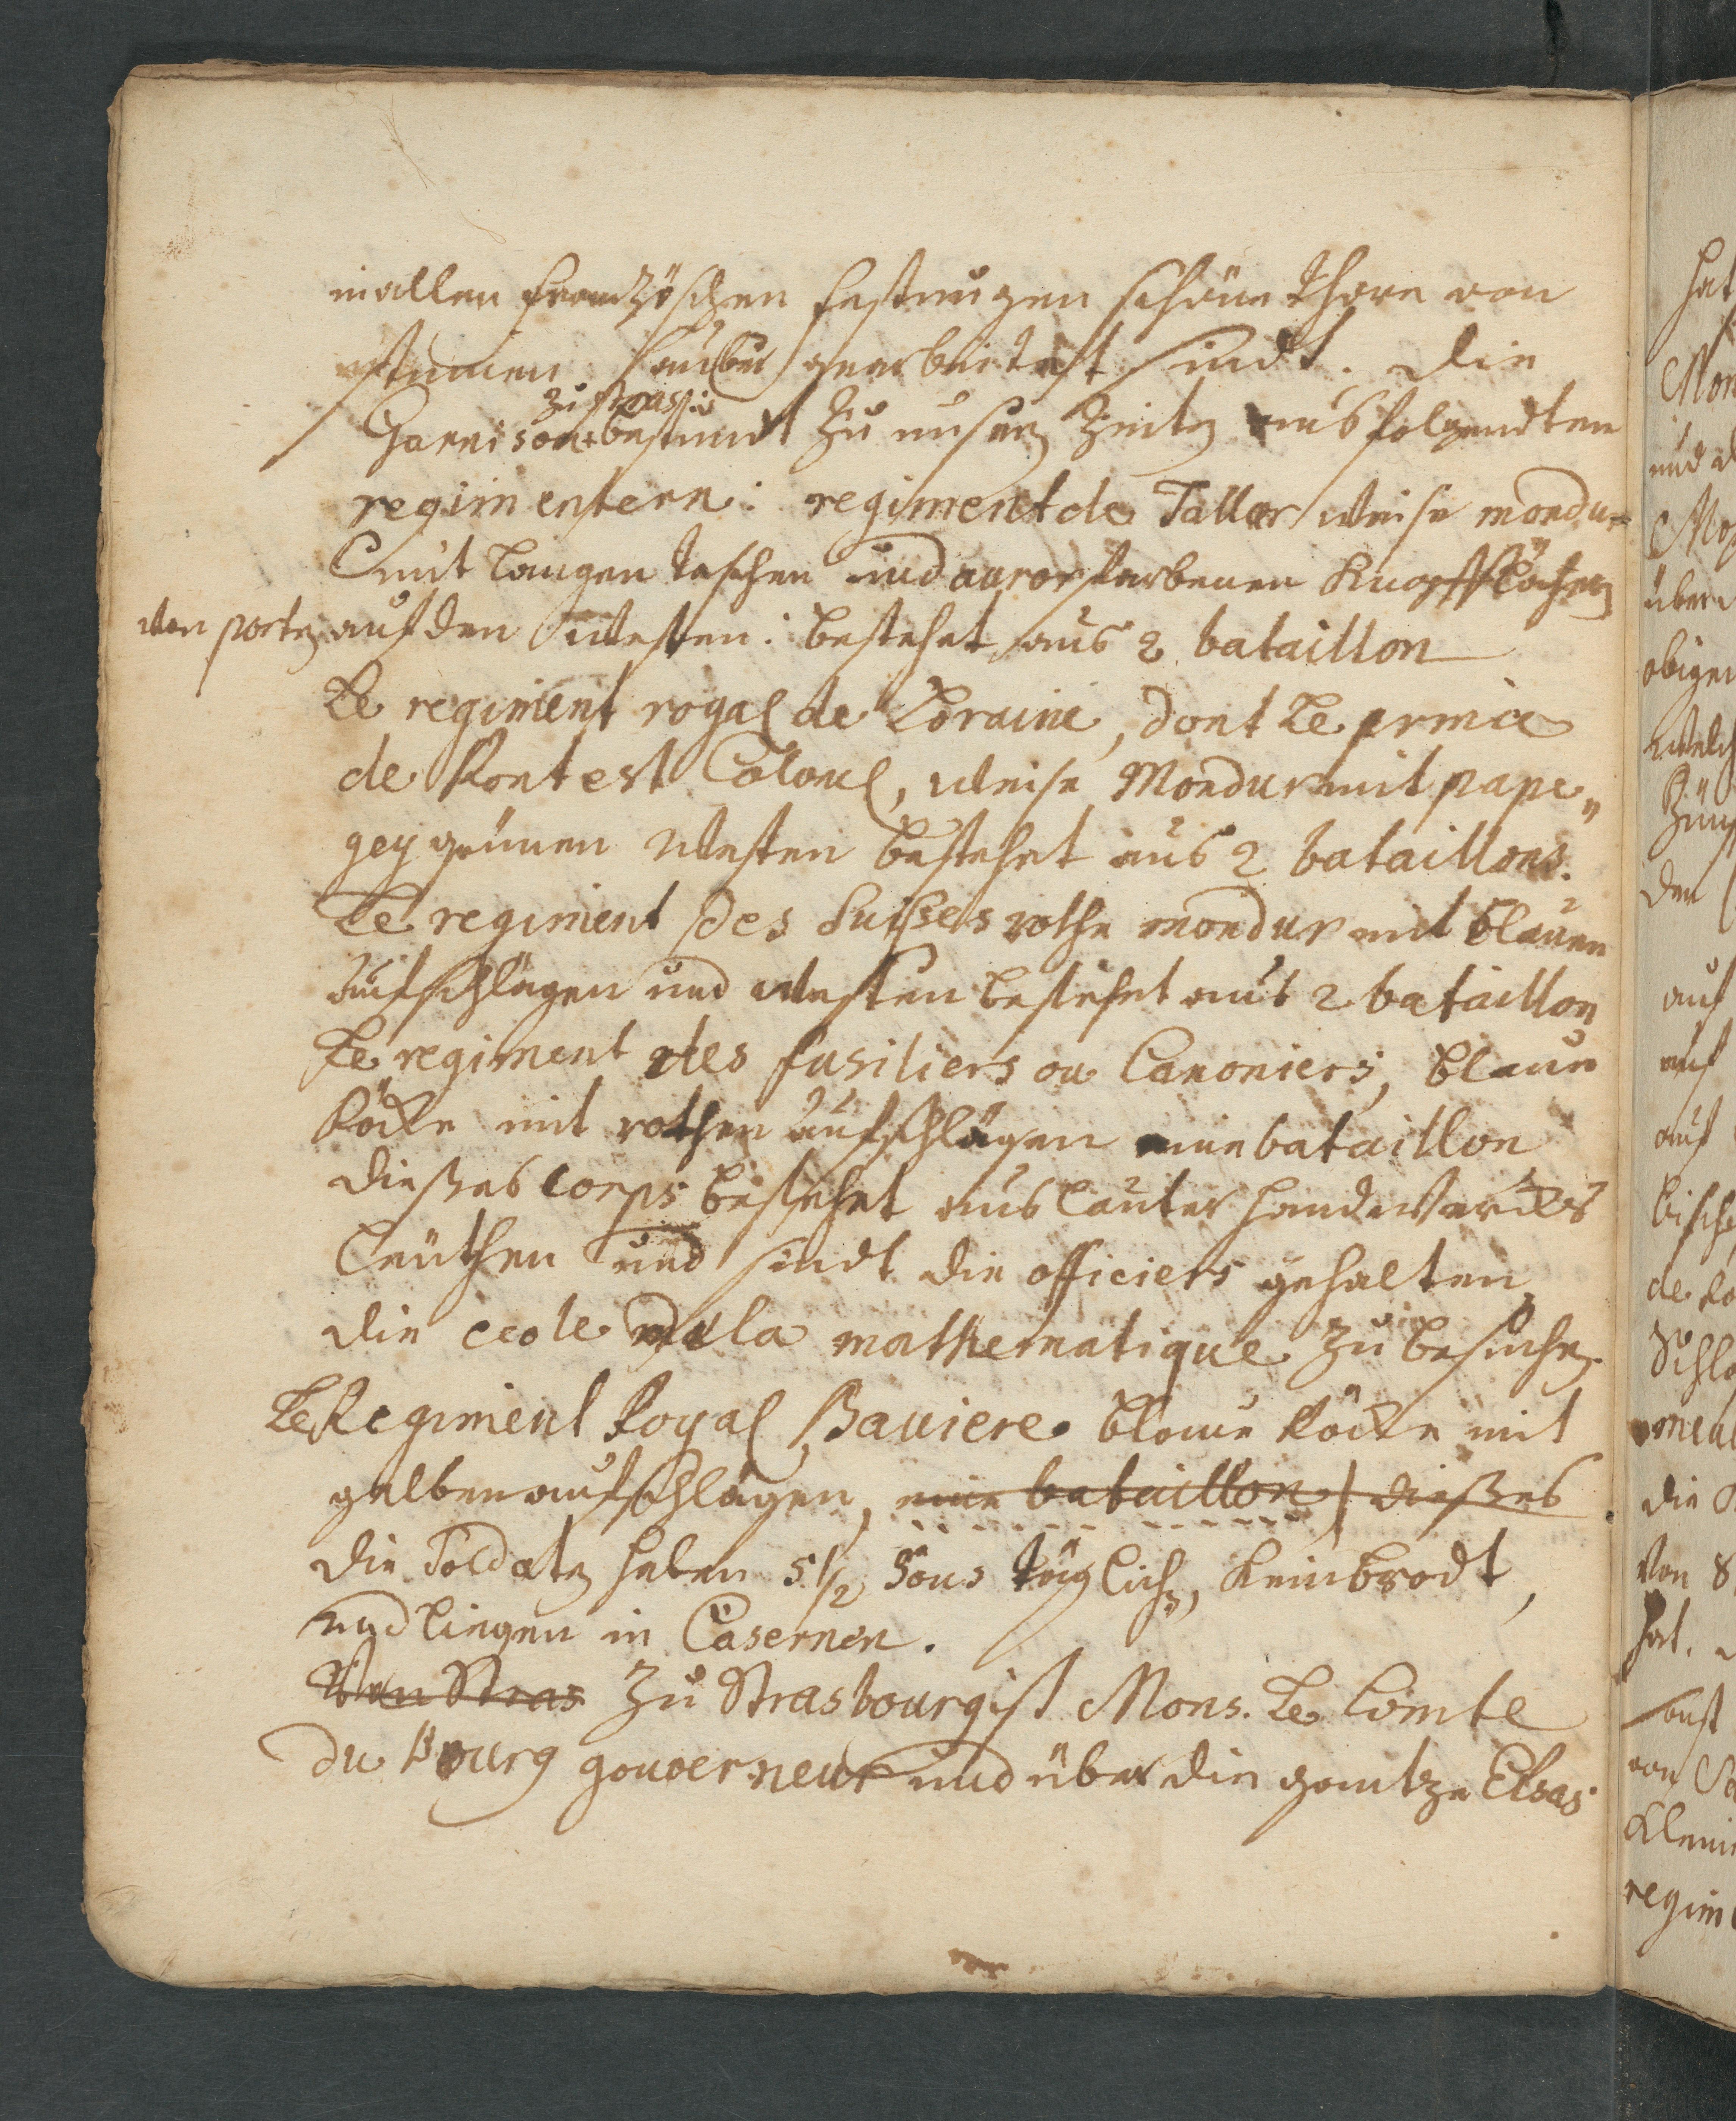 in allen frantzöschen festungen schöne thore von
steinen sauber gearbeitet sindt. Die
zu stras:
Garnison + bestundt zu unsern Zeiten aus folgendten
regimentern: regiment de Tallar weise mondur
mit langen taschen und aurorfarbenen Knopflöchern
von porten auf den westen: bestehet aus 2 bataillon
Le regiment royal de Loraine, dont Le prince
de Pont est Colonel, weise Mondur mit pape„
gey grünen westen bestehet aus 2 bataillons.
Le regiment des Suisses rothe mondur mit blauen
aufschlägen und westen bestehet aus 2 bataillon
Le regiment des fusiliers ou Canoniers, blaue
Röcke mit rothen aufschlägen eine bataillon
dießes corps bestehet aus lauter handtwercks
leuthen und sindt die officiers gehalten
die ecole de la mathematique zu besuchen.
Le Regiment Royal Baviere blaue Röcke mit
gelben aufschlägen, eine bataillon dießes
die Soldaten haben 5 1/2 Sous täglich, kein brodt,
und liegen in Casernen.
Von Stras Zu Strasbourg ist Mons. Le Comte
du Bourg gouverneur und über die gantze Elsas